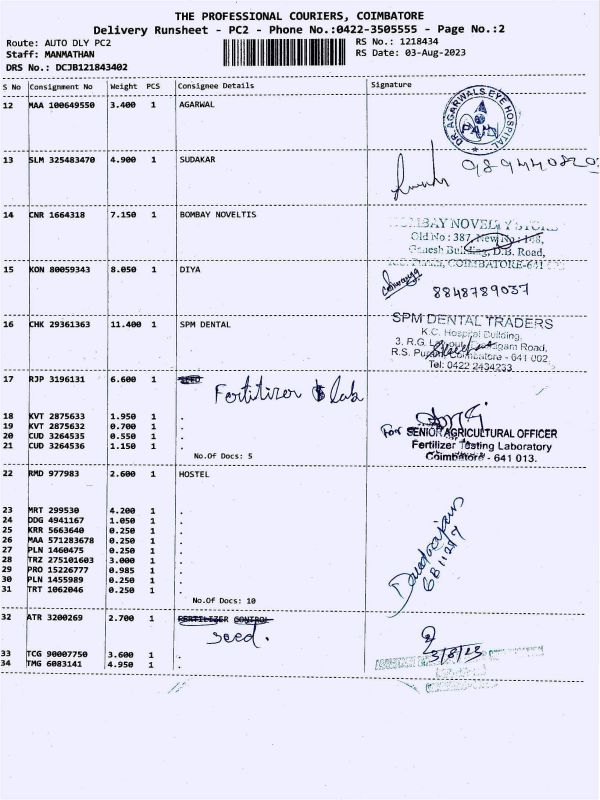 THE PROFESSIONAL COURIERS, COIMBATORE
Delivery Runsheet - PC2 - Phone No.:0422-3505555 - Page No.:2
Route: AUTO DLY PC2 RS No.: 1218434
Staff: MANMATHAN RS Date: 03-Aug-2023
DRS No.: DCJB121843402
S No Consignment No Weight PCS Consignee Details Signature
12 MAA 100649550 3.400 1 AGARWAL
DR. AGARWALS EYE HOSPITAL
13 SLM 325483470 4.900 1 SUDAKAR
14 CNR 1664318 7.150 1 BOMBAY NOVELTIS
Old No : 387, New No : 148,
Ganesh Building, D.B. Road,
COIMBATORE-641
15 KON 80059343 8.050 1 DIYA
8848789037
16 CHK 29361363 11.400 1 SPM DENTAL
SPM DENTAL TRADERS
K.C. Hospital Building,
3, R.G. Road,
R.S. Coimbatore - 641 002
Tel: 0422 2434233
17 RJP 3196131 6.600 1
Fertilizer lab
18 KVT 2875633 1.950 1 .
19 KVT 2875632 0.700 1 .
20 CUD 3264535 0.550 1 .
21 CUD 3264536 1.150 1 .
No.Of Docs: 5
For SENIOR AGRICULTURAL OFFICER
Fertilizer Testing Laboratory
Coimbatore - 641 013.
22 RMD 977983 2.600 1 HOSTEL
23 MRT 299530 4.200 1 .
24 DDG 4941167 1.050 1 .
25 KRR 5663640 0.250 1 .
26 MAA 571283678 0.250 1 .
27 PLN 1460475 0.250 1 .
28 TRZ 275101603 3.000 1 .
29 PRO 15226777 0.985 1 .
30 PLN 1455989 0.250 1 .
31 TRT 1062046 0.250 1 .
No.Of Docs: 10
32 ATR 3200269 2.700 1 FERTILIZER CONTROL
seed.
3/8/23
33 TCG 90007750 3.600 1 .
34 TMG 6083141 4.950 1 .